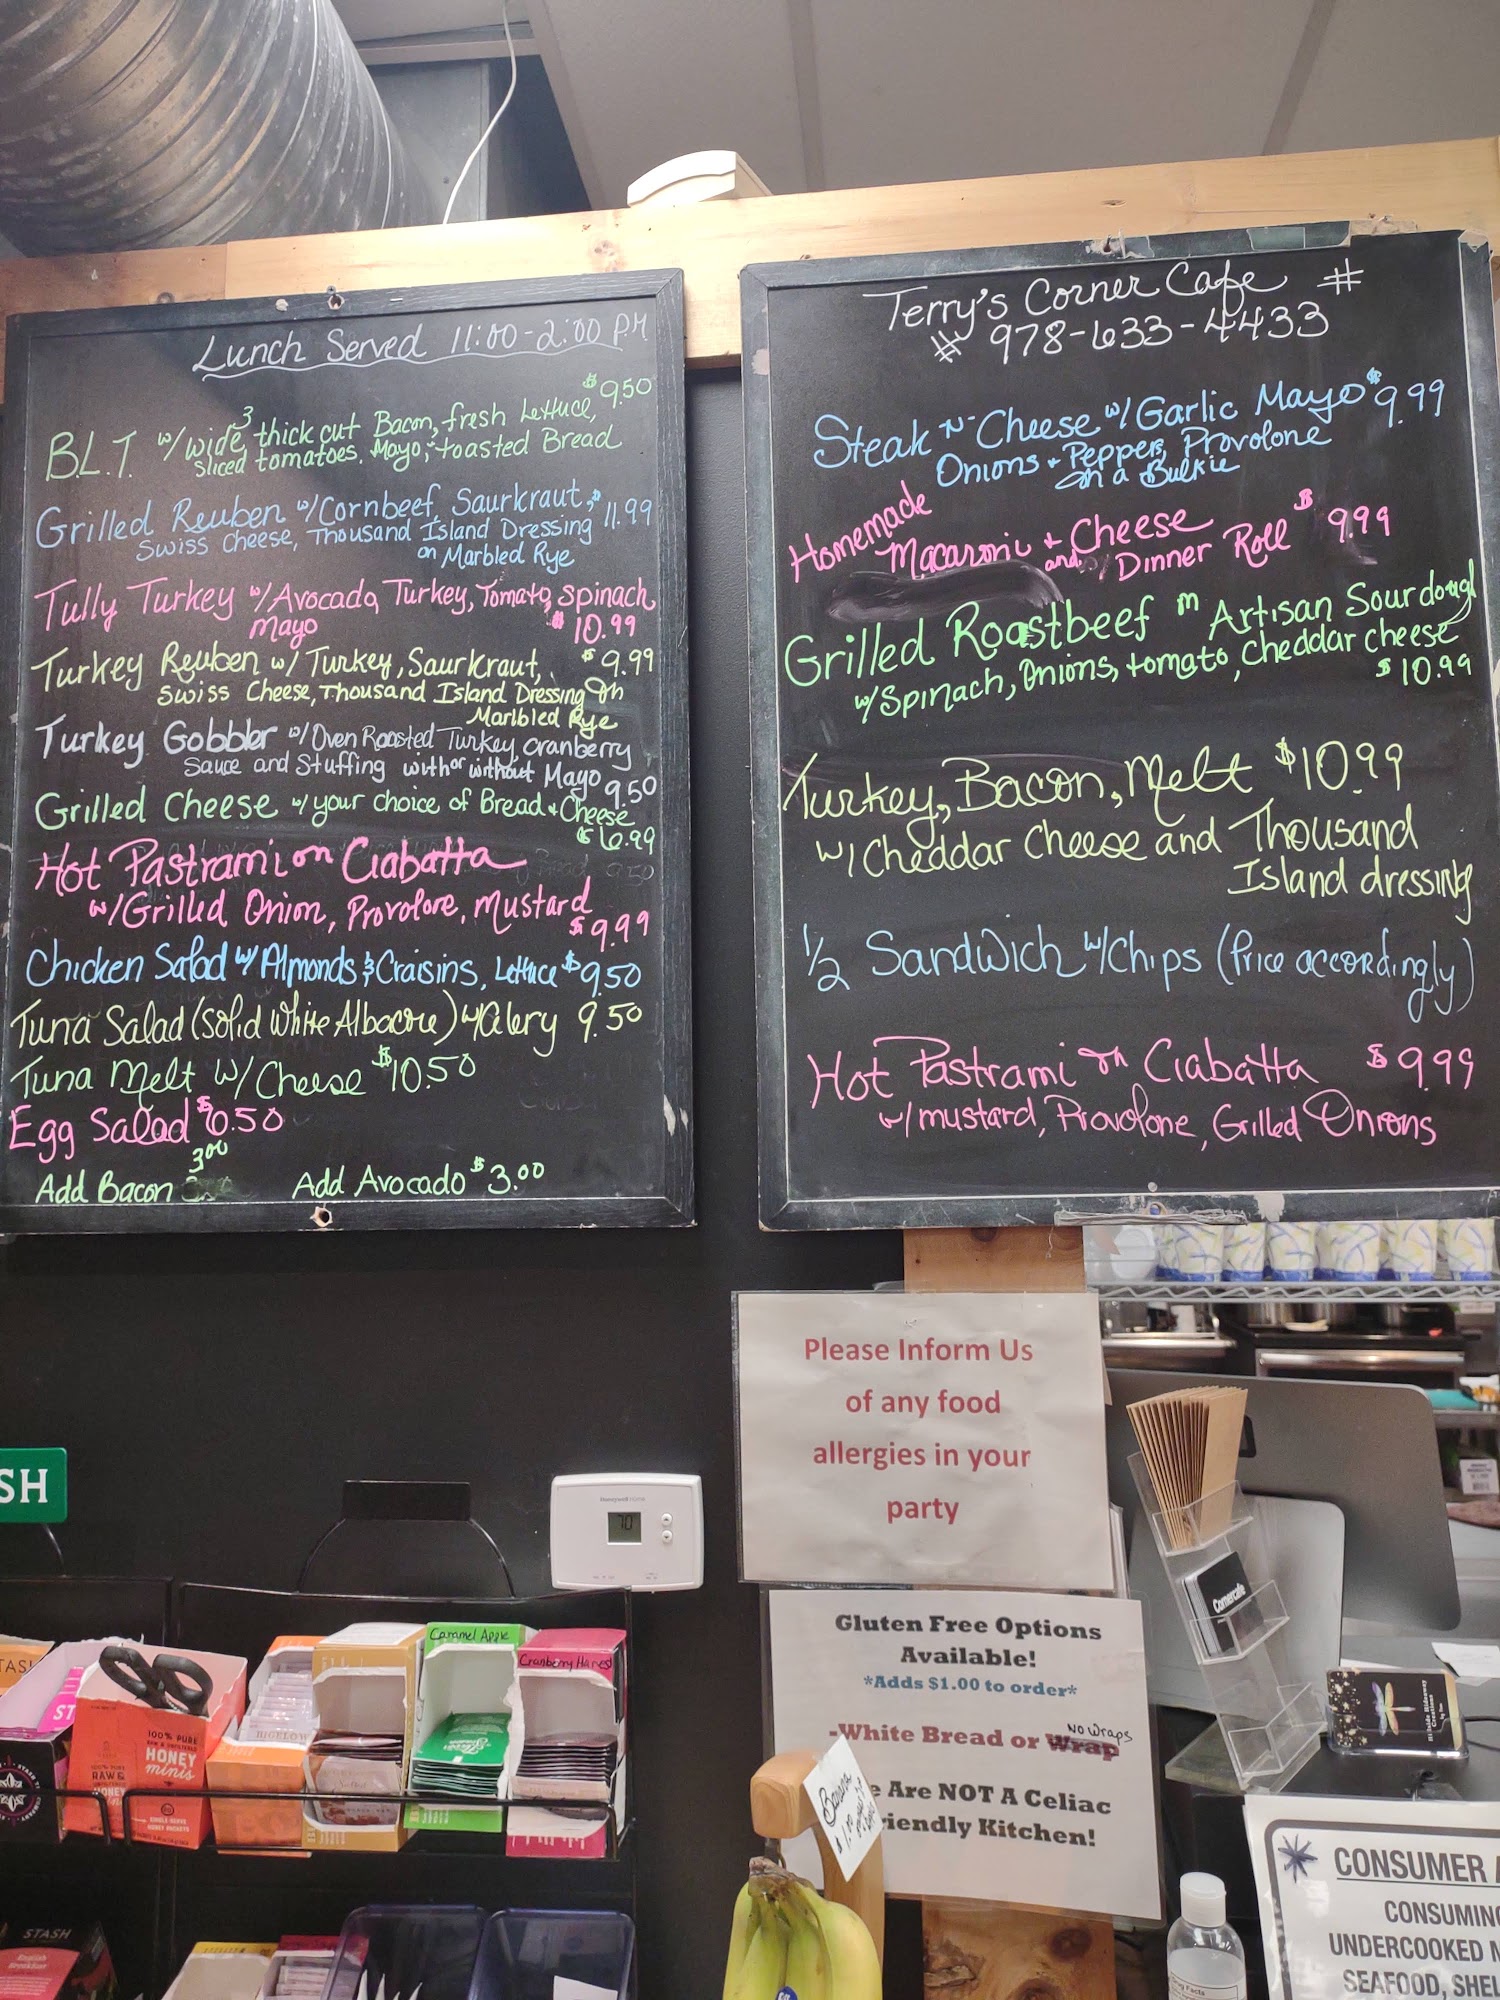 Lunch Served 11:00-2:00 P.M
B.L.T. w/ wide 3 thick cut Bacon, fresh Lettuce, $9.50
sliced tomatoes. Mayo, toasted Bread
Grilled Reuben w/ Cornbeef, Saurkraut, $11.99
Swiss Cheese, Thousand Island Dressing
on Marbled Rye
Tully Turkey w/ Avocado, Turkey, Tomato, spinach
Mayo $10.99
Turkey Reuben w/ Turkey, Saurkraut, $9.99
Swiss Cheese, Thousand Island Dressing on
Marlbled Rye
Turkey Gobbler w/ Oven Roasted Turkey, cranberry
Sauce and Stuffing with or without Mayo 9.50
Grilled Cheese w/ your choice of Bread + Cheese
$6.99
Hot Pastrami on Ciabatta
w/ Grilled Onion, Provolone, Mustard
$9.99
Chicken Salad w/ Almonds & Craisins, Lettuce $9.50
Tuna Salad (solid white Albacore) w/ Celery 9.50
Tuna Melt w/ Cheese $10.50
Egg Salad $6.50
3.00
Add Bacon Add Avocado $3.00
Terry's Corner Cafe #
# 978-633-4433
Steak -N- Cheese w/ Garlic Mayo $9.99
Onions + Peppers, Provolone
on a Bulkie
Homemade
Macaroni + Cheese
and Dinner Roll $9.99
Grilled Roastbeef on Artisan Sourdough
w/ Spinach, Onions, tomato, Cheddar cheese
$10.99
Turkey, Bacon, Melt $10.99
w/ Cheddar Cheese and Thousand
Island dressing
1/2 Sandwich w/ Chips (Price accordingly)
Hot Pastrami on Ciabatta $9.99
w/ mustard, Provolone, Grilled Onions
Please Inform Us
of any food
allergies in your
party
Gluten Free Options
Available!
*Adds $1.00 to order*
-White Bread or Wrap No Wraps
e Are NOT A Celiac
iendly Kitchen!
SH
Honeywell Home
70
Caramel Apple
Cranberry Harvest
TASH
ST
100% PURE
RAW &
HONEY
minis
BIGELOW
STASH
English
Breakfast
Banana
Cornercafe
Hillside Hideaway
Creations
CONSUMER A
CONSUMING
UNDERCOOKED M
SEAFOOD, SHEL
Drug Facts